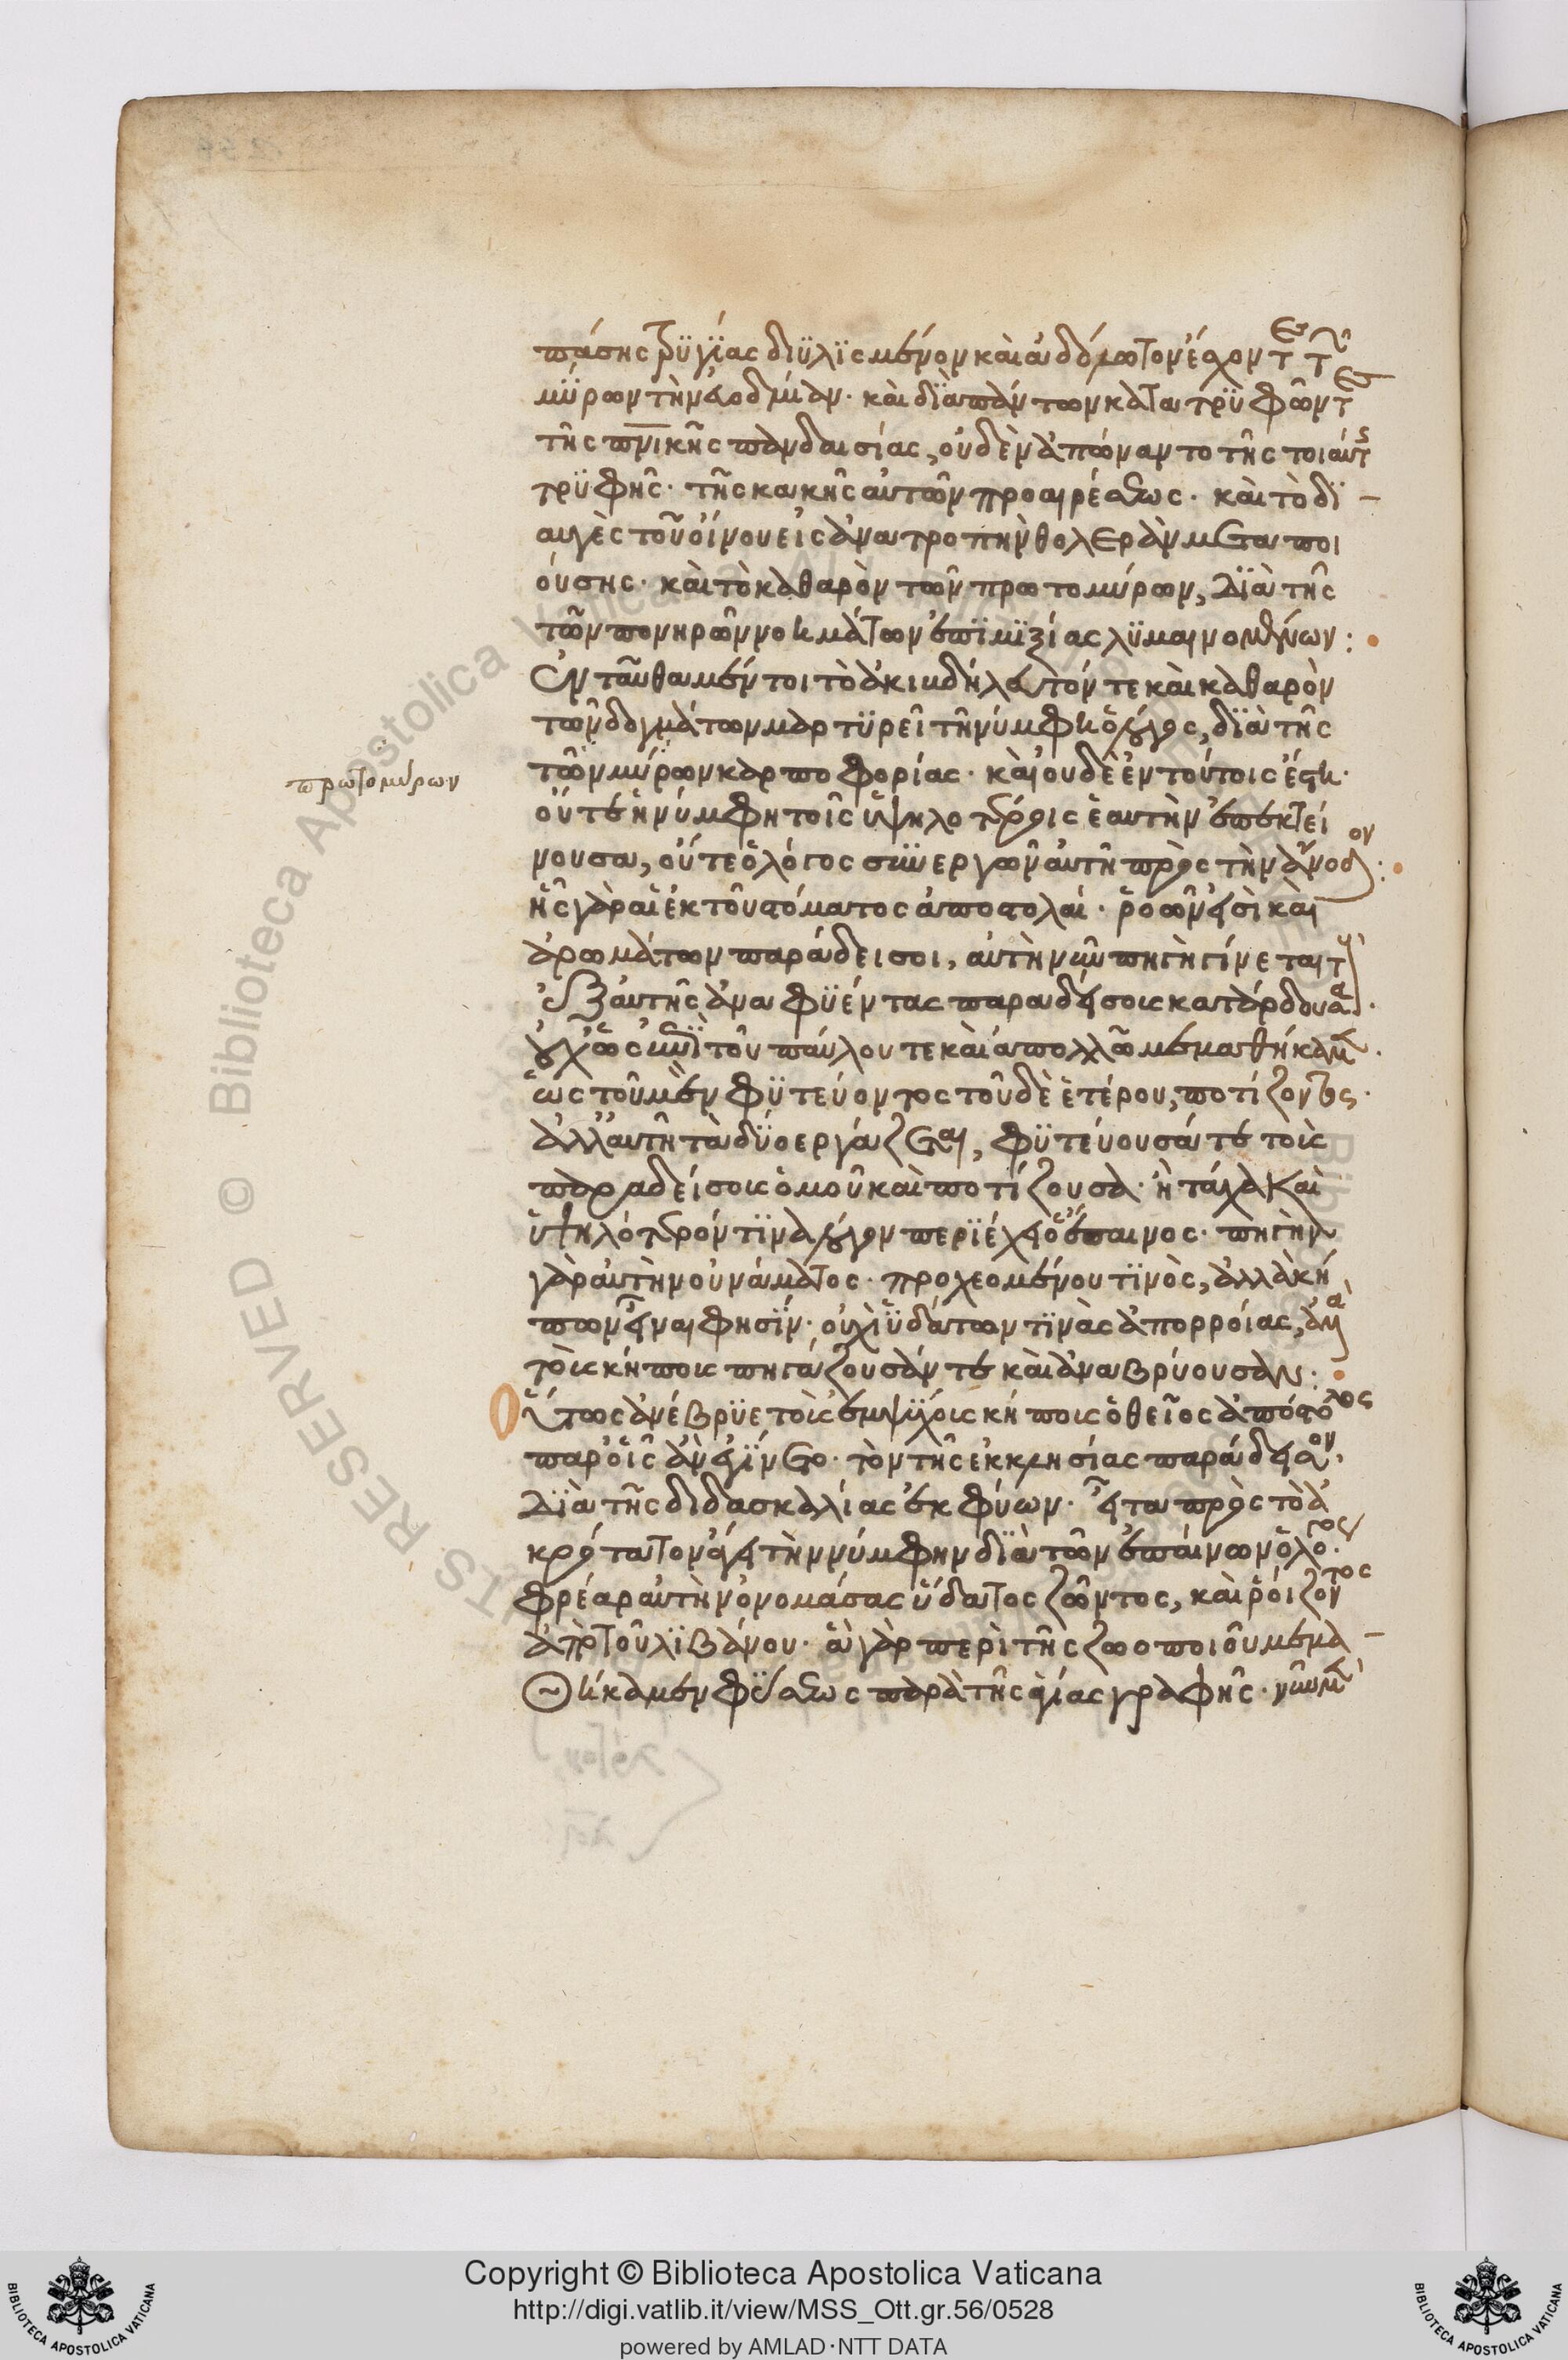 πάσης τρϋγΐας διϋλϊσμένον καὶ ἀνόθευτον ἔχοντες τῶν
μΰρων τὴν εὐοδμίαν· καὶ δϊαπάντων κατατρϋφῶντες
τῆς πνικῆς πανδαισίας, οὐδὲν ἀπώναντο τῆς τοιαύτης
τρϋφῆς· τῆς κακῆς αὐτῶν προαιρέσεως· καὶ τὸ δϊ-
αυγὲς τοῦ οἴνου εἰς ἀνατροπὴν θολερὰν μεταποι
ούσης· καὶ τὸ καθαρὸν τῶν πρωτομύρων, δϊὰ τῆς
τῶν πονηρῶν νοημάτων ἐπϊμϊξίας λϋμαινομένων:
Ἐνταῦθα μέντοι τὸ ἀκιβδήλευτόν τε καὶ καθαρὸν
τῶν δογμάτων μαρτϋρεῖ τῇ νύμφη ὁ λόγος, δϊὰ τῆς
τῶν μύρων καρποφορίας· καὶ οὐδὲ ἐν τούτοις ἔστη·
οὔτε ἡ νύμφη τοῖς ὑψηλοτέροις ἑαυτὴν ἐπεκτεί
νουσα, οὔτε ὁ λόγος συνεργῶν αὐτῇ πρὸς τὴν ἄνοδον:
ἧς γὰρ αἱ ἐκ τοῦ στόματος ἀποστολαί· ῥοῶν εἰσὶ καὶ
ἀρωμάτων παράδεισοι, αὐτὴ νῦν πηγὴ γίνεται τοὺς
ἐξ αὐτῆς ἀναφϋέντας παραδείσους κατάρδουσα·
οὐχ ὡς ἐπὶ τοῦ παύλου τε καὶ ἀπολλῶ μεμαθήκαμεν·
ὡς τοῦ μὲν φϋτεύοντος τοῦ δὲ ἑτέρου, ποτίζοντος·
ἀλλ' αὐτὴ τὰ δύο εργάζεται, φϋτεύουσά τε τοὺς
παραδείσους ὁμοῦ καὶ ποτίζουσα· ἢ τάχα καὶ
ὑψηλότερόν τϊνα λόγον περϊέχει ὁ ἔπαινος· πηγὴν
γὰρ αὐτὴν οὐ νάματος· προχεομένου τϊνὸς, ἀλλὰ κή
πων εἶναι φησΐν· οὐχὶ ὑδάτων τϊνὰς ἀπορροίας, ἀλλὰ
τοὺς κήπους πηγάζουσάν τε καὶ ἀναβρύουσαν:
Οὕτως ἀνέβρϋε τοὺς ἐμψύχους κήπους ὁ θεῖος ἀπόστολος
παρ' οἷς ἂν ἐγίνετο· τὸν τῆς ἐκκλησίας παράδεισον,
δϊὰ τῆς διδασκαλίας ἐκφύων· εἶτα πρὸς τὸ ἀ
κρότατον ἄγει τὴν νύμφην δϊὰ τῶν ἐπαίνων ὁ λόγος·
φρέαρ αὐτὴν ὀνομάσας ὕδατος ζῶντος, καὶ ῥοίζοντος
ἀπὸ τοῦ λϊβάνου· ἃ γὰρ περὶ τῆς ζωοποιοῦ μεμα-
θήκαμεν φύσεως παρὰ τῆς ἁγίας γραφῆς· νῦν μὲν
πρωτομύρων
Copyright © Biblioteca Apostolica Vaticana
http://digi.vatlib.it/view/MSS_Ott.gr.56/0528
powered by AMLAD·NTT DATA